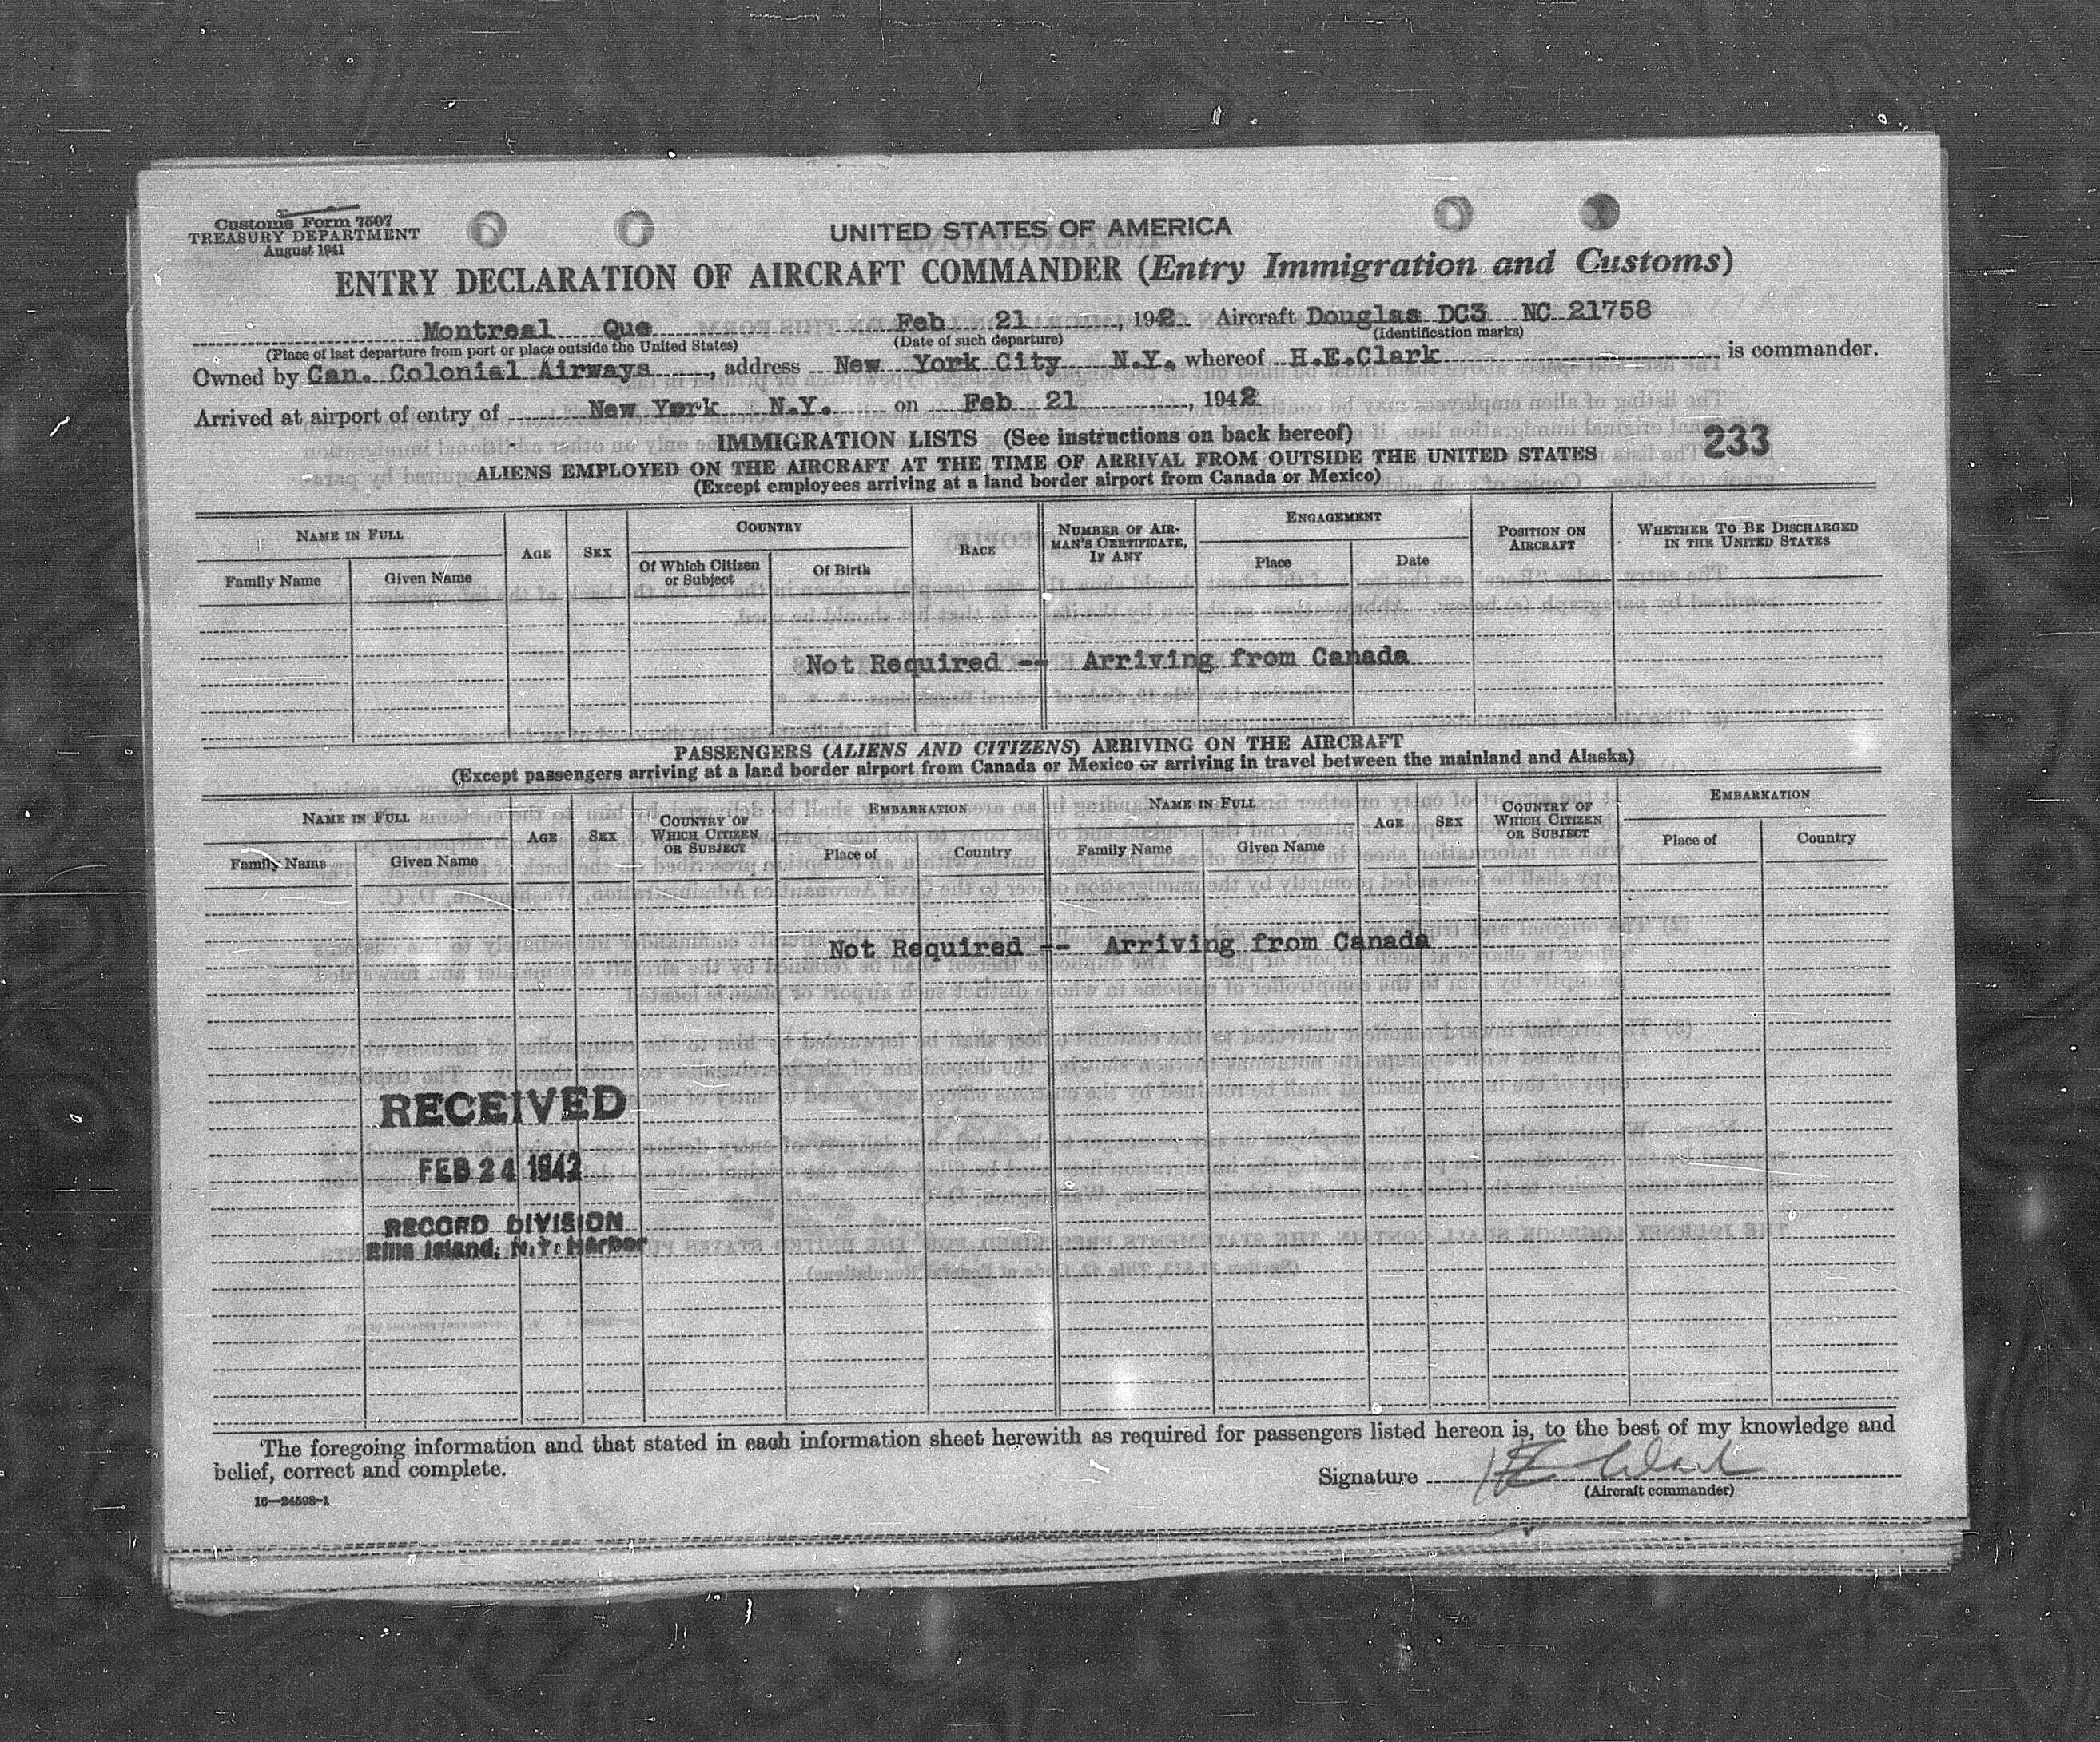 Customs Form 7507
TREASURY DEPARTMENT
August 1941
UNITED STATES OF AMERICA
ENTRY DECLARATION OF AIRCRAFT COMMANDER (Entry Immigration and Customs)
Montreal Que Feb 21, 1942 Aircraft Douglas DC3 NC 21758
(Place of last departure from port or place outside the United States) (Date of such departure) (Identification marks)
Owned by Can. Colonial Airways, address New York City N.Y. whereof H.E.Clark is commander.
Arrived at airport of entry of New York N.Y. on Feb 21, 1942
IMMIGRATION LISTS (See instructions on back hereof)
233
ALIENS EMPLOYED ON THE AIRCRAFT AT THE TIME OF ARRIVAL FROM OUTSIDE THE UNITED STATES
(Except employees arriving at a land border airport from Canada or Mexico)
NAME IN FULL
Family Name Given Name
AGE
SEX
COUNTRY
Of Which Citizen or Subject
Of Birth
RACE
NUMBER OF AIR-
MAN'S CERTIFICATE,
IF ANY
ENGAGEMENT
Place Date
POSITION ON
AIRCRAFT
WHETHER TO BE DISCHARGED
IN THE UNITED STATES
Not Required -- Arriving from Canada
PASSENGERS (ALIENS AND CITIZENS) ARRIVING ON THE AIRCRAFT
(Except passengers arriving at a land border airport from Canada or Mexico or arriving in travel between the mainland and Alaska)
NAME IN FULL
Family Name Given Name
AGE
SEX
COUNTRY OF
WHICH CITIZEN
OR SUBJECT
EMBARKATION
Place of Country
NAME IN FULL
Family Name Given Name
AGE
SEX
COUNTRY OF
WHICH CITIZEN
OR SUBJECT
EMBARKATION
Place of Country
Not Required -- Arriving from Canada
RECEIVED
FEB 24 1942
RECORD DIVISION
Ellis Island, N.Y. Harbor
The foregoing information and that stated in each information sheet herewith as required for passengers listed hereon is, to the best of my knowledge and
belief, correct and complete.
Signature H E Clark
(Aircraft commander)
16—24598-1